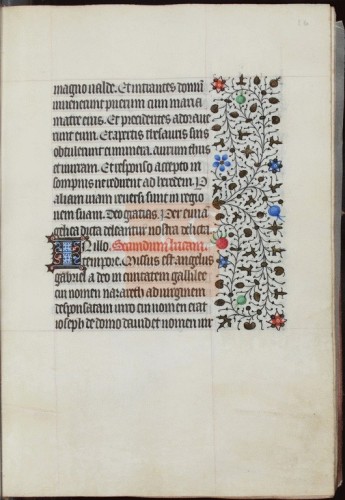 magno valde. Et intrantes domum
invenerunt puerum cum maria
matre eius. Et procidentes adorave
runt eum. Et apertis thesauris suis
obtulerunt ei munera. aurum thus
et mirram. Et responso accepto in
sompnis ne redirent ad herodem. P
aliam viam reversi sunt in regio
nem suam. Deo gratias. Per evan
gelica dicta deleantur nostra delicta
In illo. Secundum lucam.
tempore. Missus est angelus
gabriel a deo in civitatem galilee
cui nomen nazareth ad virginem
desponsatam viro cui nomen erat
ioseph de domo david et nomen vir